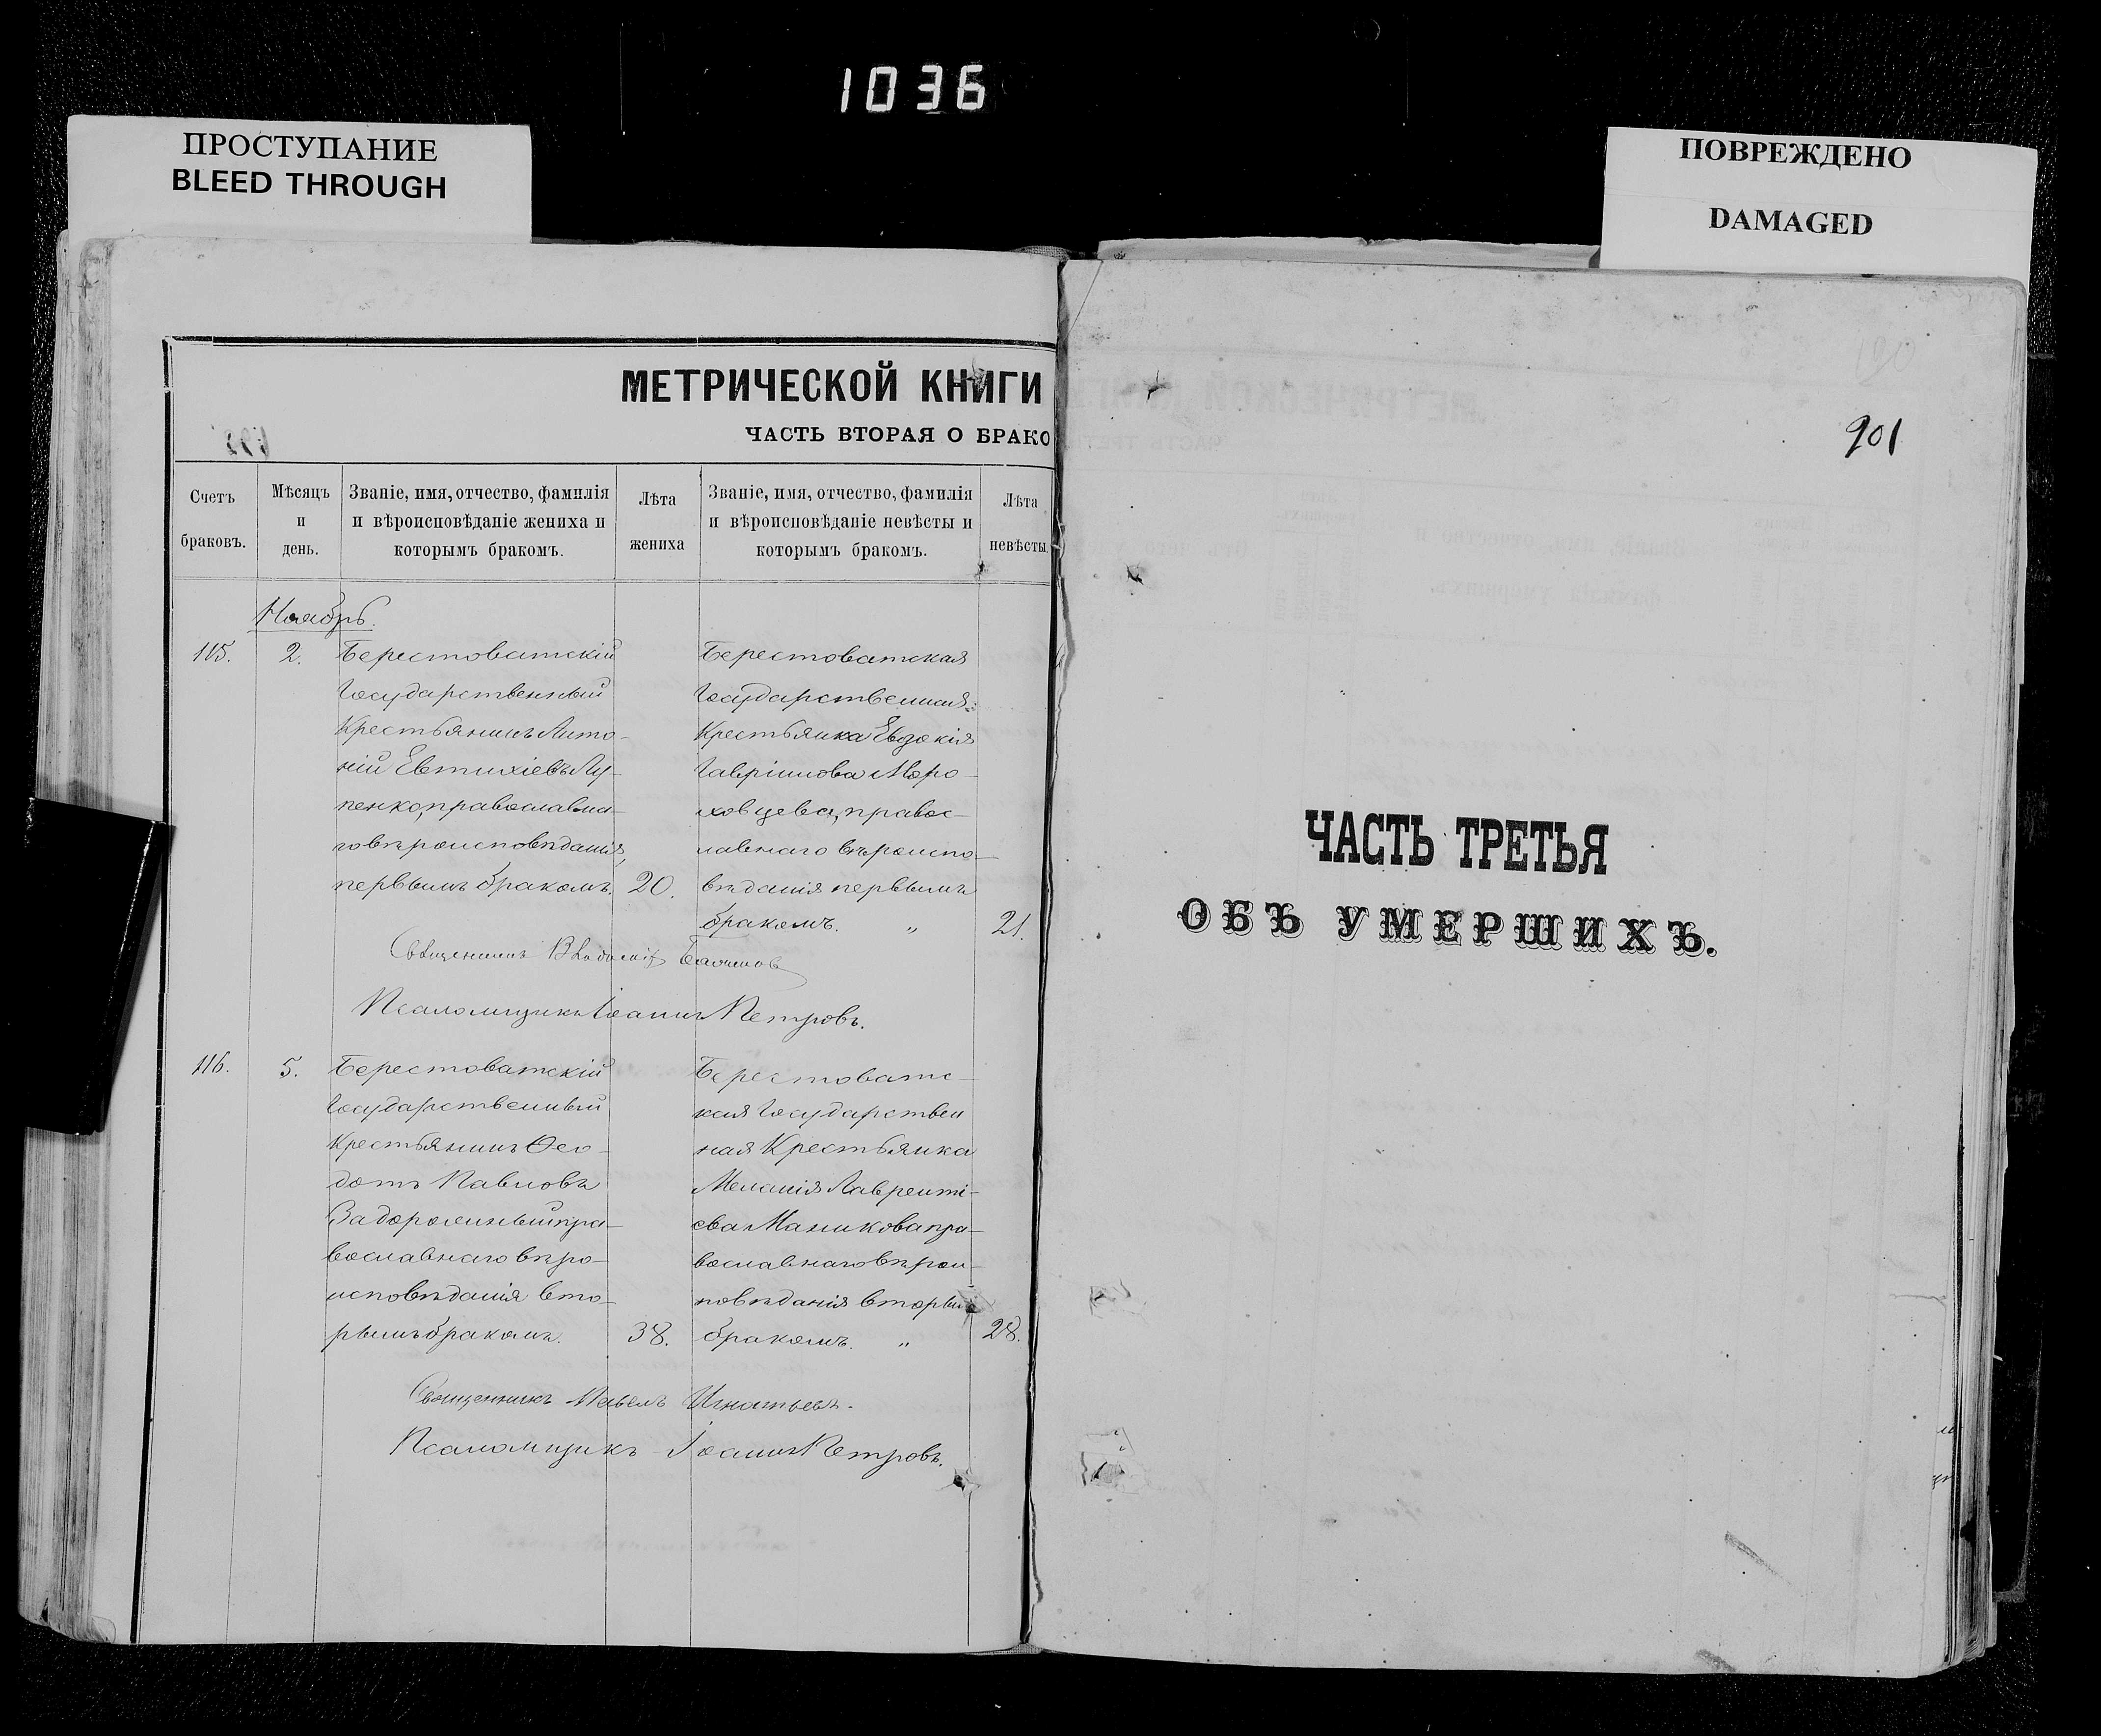 1036
ПРОСТУПАНИЕ
BLEED THROUGH
ПОВРЕЖДЕНО
DAMAGED
МЕТРИЧЕСКОЙ КНИГИ
ЧАСТЬ ВТОРАЯ О БРАКО
Счетъ браковъ.
Мѣсяцъ и день.
Званіе, имя, отчество, фамилія и вѣроисповѣданіе жениха и которымъ бракомъ.
Лѣта жениха
Званіе, имя, отчество, фамилія и вѣроисповѣданіе невѣсты и которымъ бракомъ.
Лѣта невѣсты.
Ноябрь.
115.
2.
Берестоватскій
Государственный
Крестьянинъ Анто-
ній Евтихіевъ Лу-
пенко, православна-
го вѣроисповѣданія,
первымъ бракомъ.
20.
Берестоватская
Государственная
Крестьянка Евдокія
Гавріилова Моро-
ховцева, правос-
лавнаго вѣроиспо-
вѣданія первымъ
бракомъ. "
21.
Священникъ Владиміръ
Псаломщикъ Іоаннъ Петровъ.
116.
5.
Берестоватскій
Государственный
Крестьянинъ Ѳео-
дотъ Павловъ
Задорожный пра-
вославнаго вѣро-
исповѣданія вто-
рымъ бракомъ.
38.
Берестоватс-
кая Государствен
ная Крестьянка
Меланія Лавренті-
ева Маликова пра-
вославнаго вѣрои-
повѣданія вторым
бракомъ. "
28.
Священникъ Павелъ Игнатьевъ.
Псаломщикъ Іоаннъ Петровъ.
901
ЧАСТЬ ТРЕТЬЯ
ОБЪ УМЕРШИХЪ.